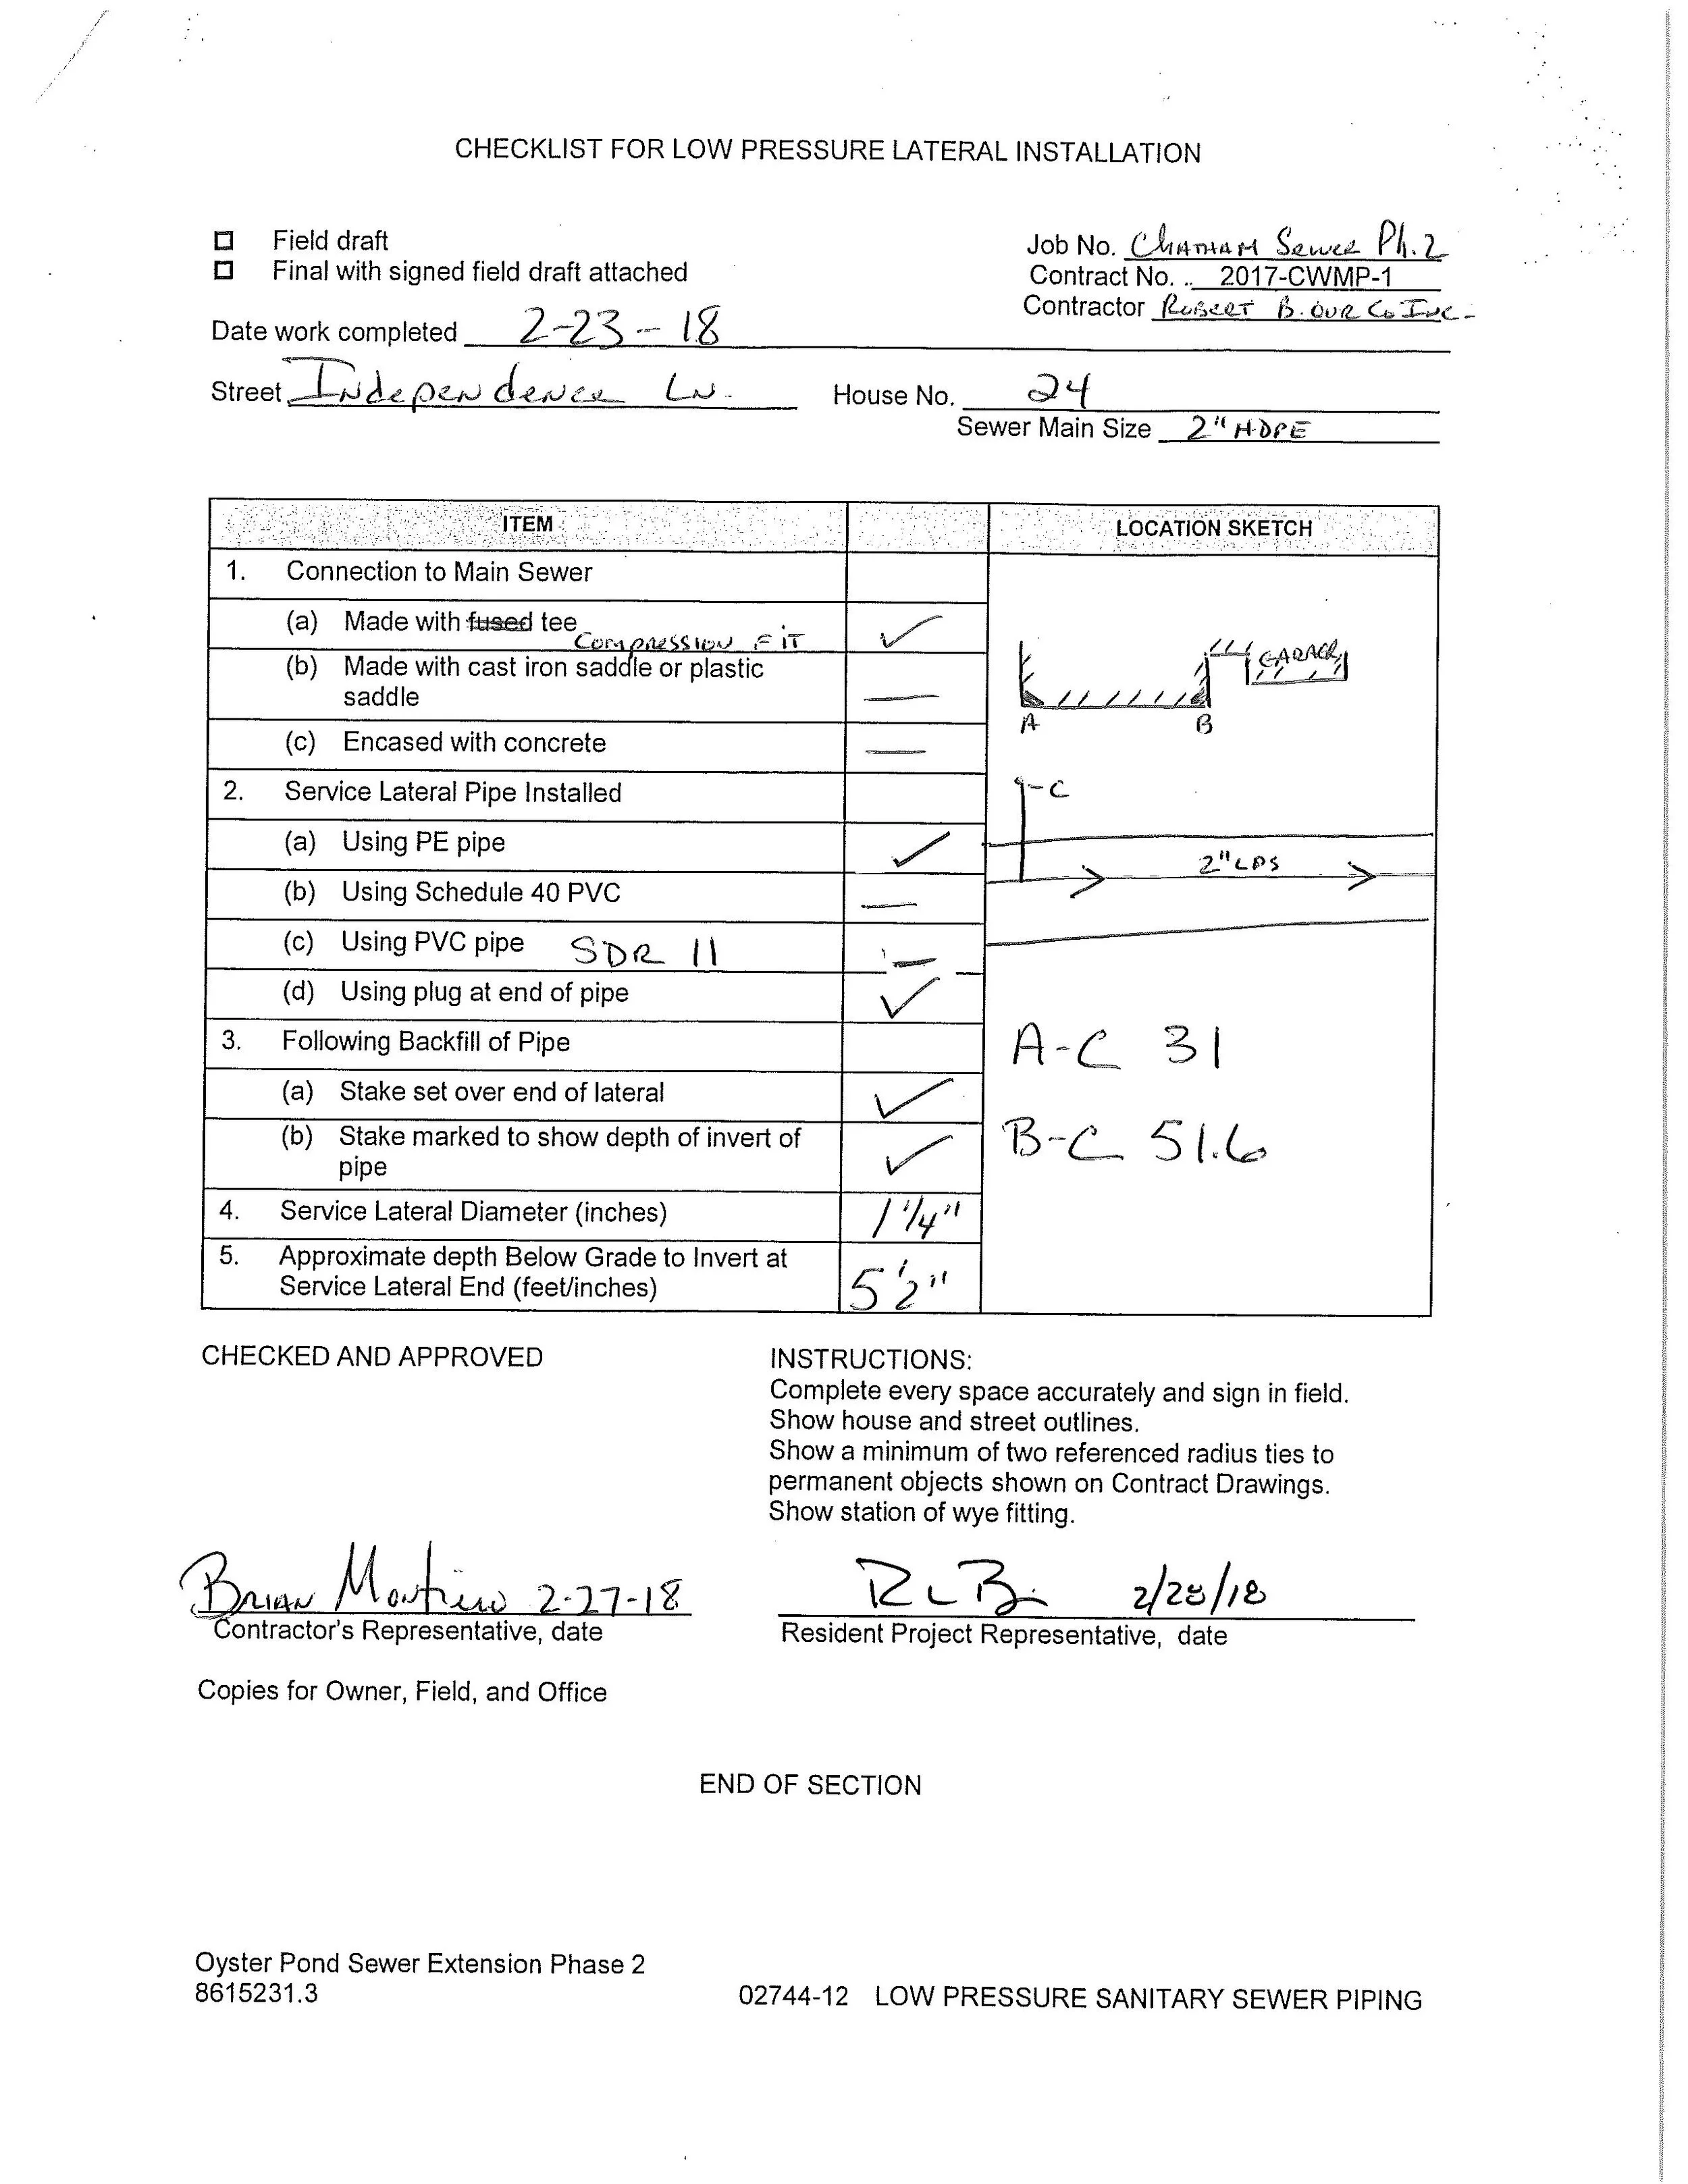 CHECKLIST FOR LOW PRESSURE LATERAL INSTALLATION
Field draft
Final with signed field draft attached
Job No. Chatham Sewer Ph. 2
Contract No. .. 2017-CWMP-1
Contractor Robert B. Our Co Inc.
Date work completed 2-23-18
Street Independence Ln.
House No. 24
Sewer Main Size 2" HDPE
ITEM
LOCATION SKETCH
1. Connection to Main Sewer
(a) Made with fused tee
COMPRESSION FIT
(b) Made with cast iron saddle or plastic
saddle
(c) Encased with concrete
2. Service Lateral Pipe Installed
(a) Using PE pipe
(b) Using Schedule 40 PVC
(c) Using PVC pipe SDR 11
(d) Using plug at end of pipe
3. Following Backfill of Pipe
(a) Stake set over end of lateral
(b) Stake marked to show depth of invert of
pipe
4. Service Lateral Diameter (inches) 1 1/4"
5. Approximate depth Below Grade to Invert at
Service Lateral End (feet/inches) 5'2"
GARAGE
A
B
C
2" LPS
A-C 31
B-C 51.6
CHECKED AND APPROVED
INSTRUCTIONS:
Complete every space accurately and sign in field.
Show house and street outlines.
Show a minimum of two referenced radius ties to
permanent objects shown on Contract Drawings.
Show station of wye fitting.
Brian 2-27-18
Contractor's Representative, date
2/28/18
Resident Project Representative, date
Copies for Owner, Field, and Office
END OF SECTION
Oyster Pond Sewer Extension Phase 2
8615231.3
02744-12 LOW PRESSURE SANITARY SEWER PIPING